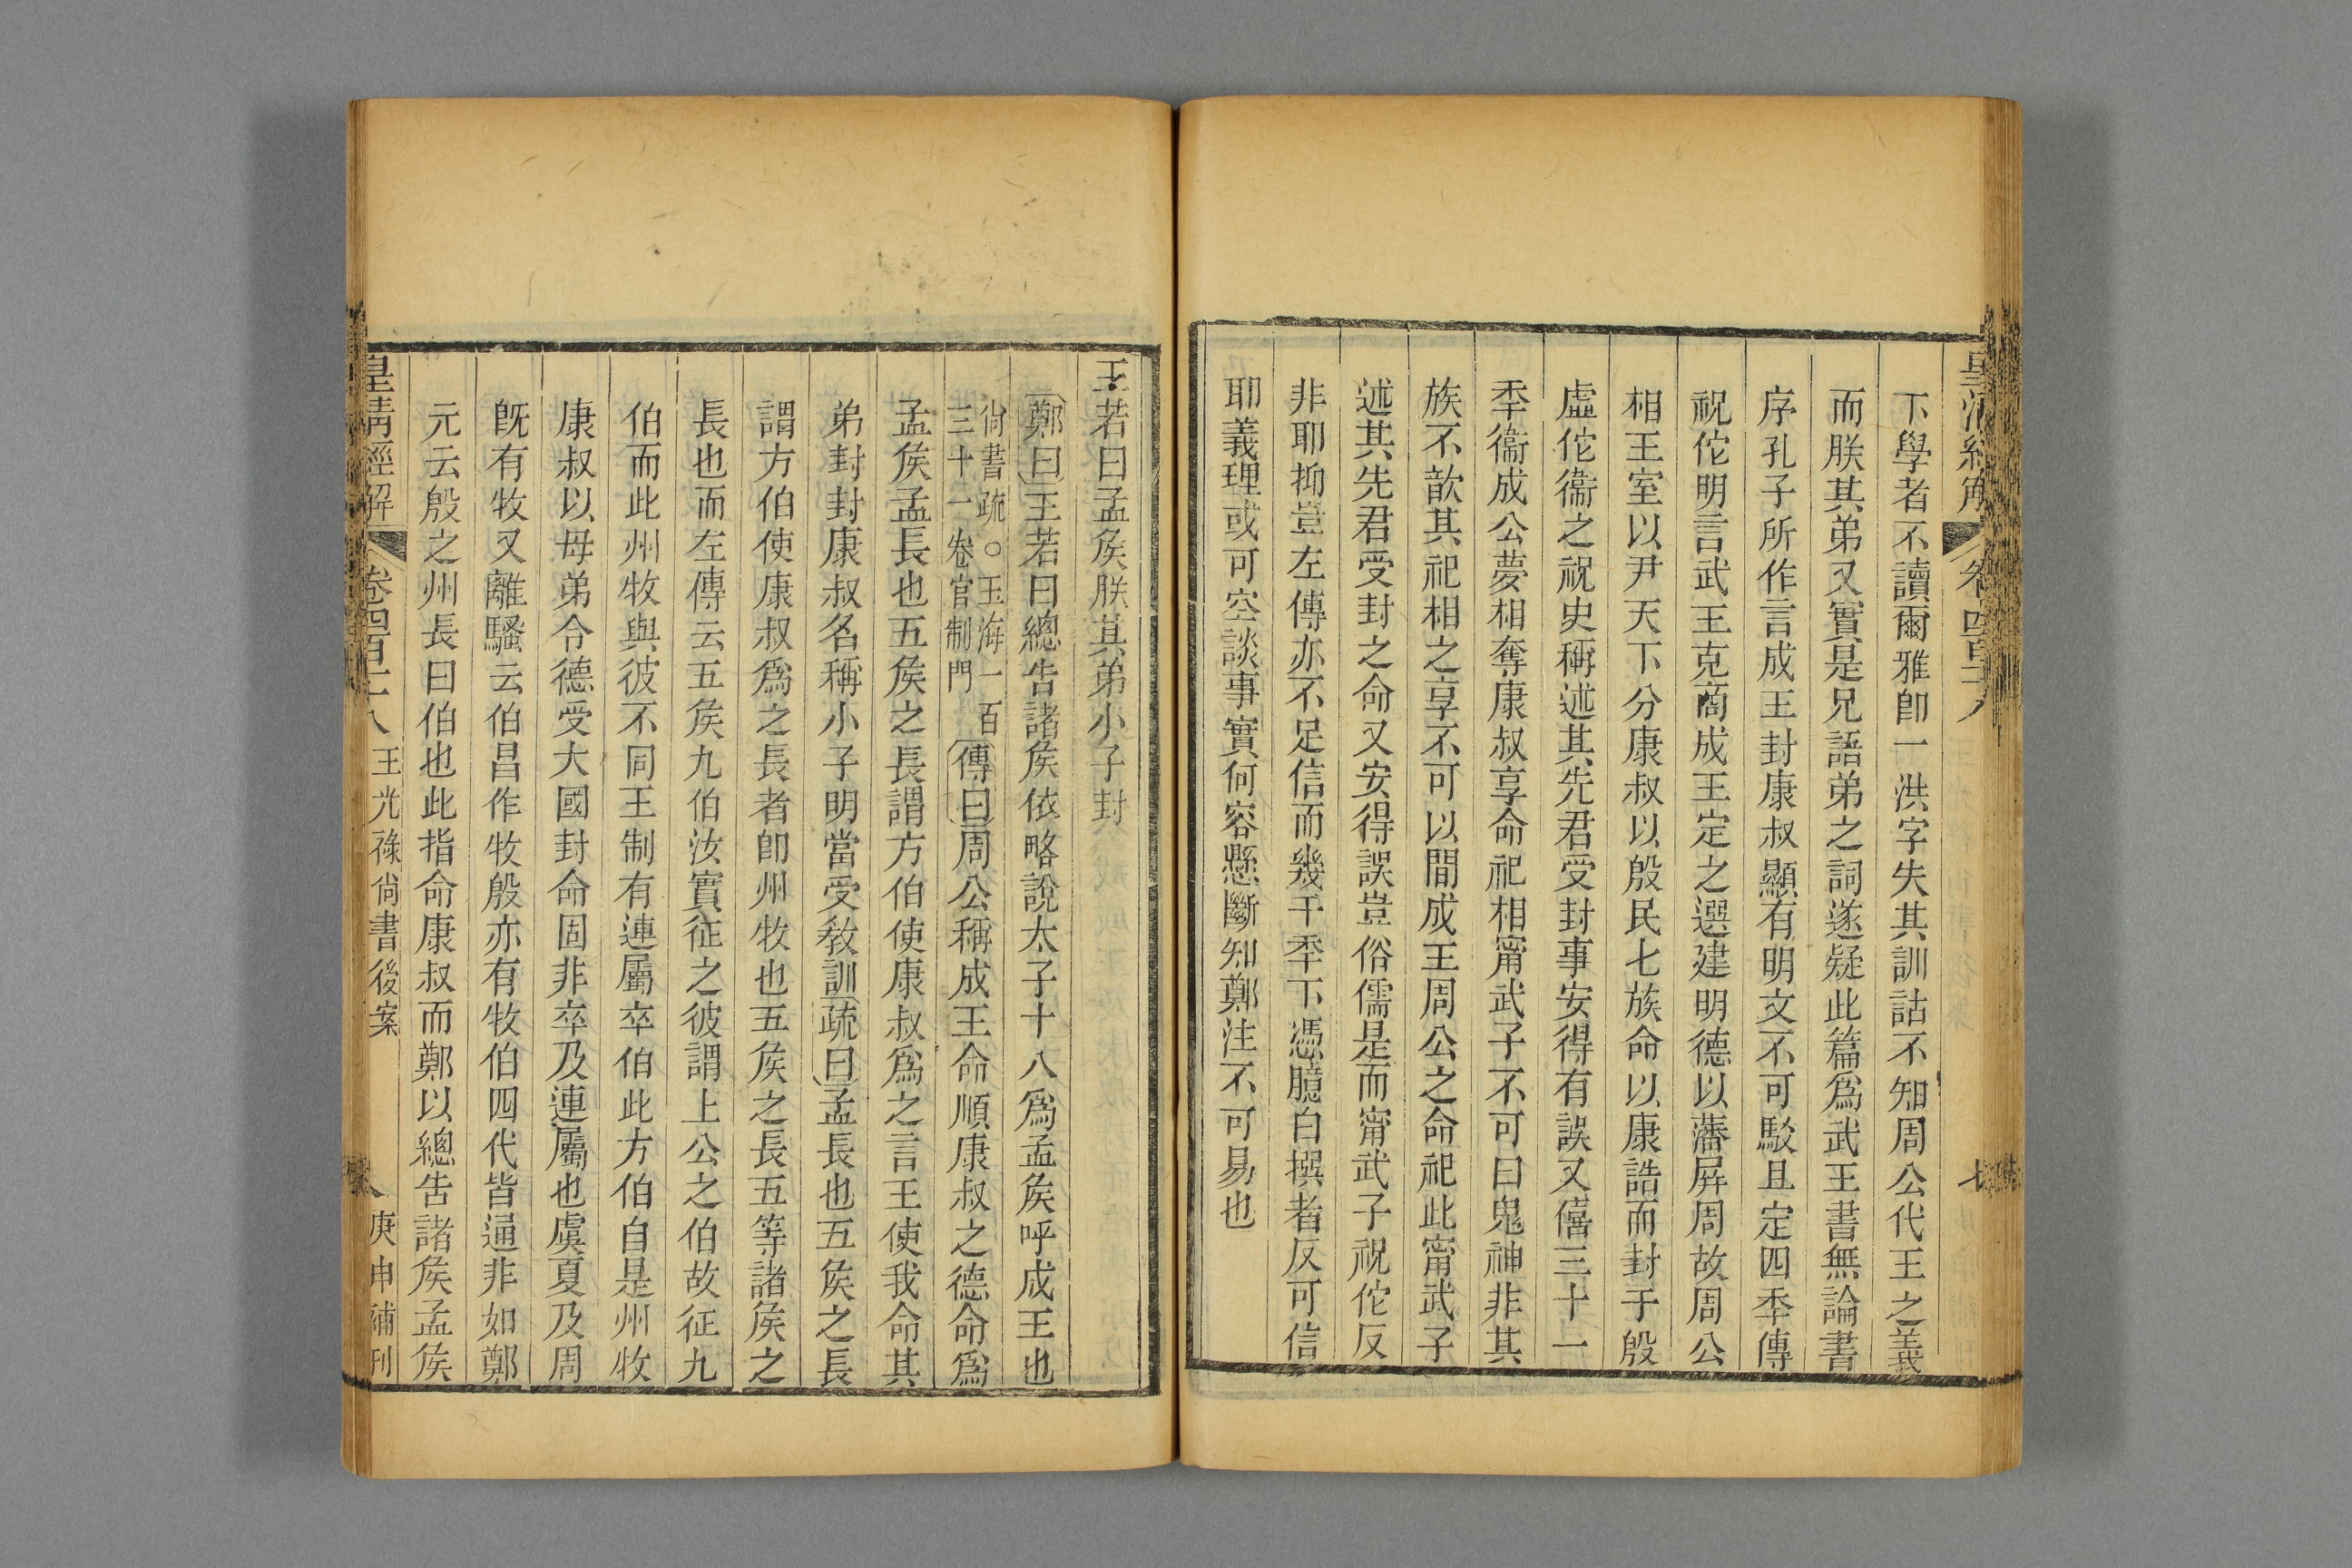 皇清經解
卷四百十八
七
下學者不讀爾雅卽一洪字失其訓詁不知周公代王之義
而朕其弟又實是兄語弟之詞遂疑此篇爲武王書無論書
序孔子所作言成王封康叔顯有明文不可駁且定四秊傳
祝佗明言武王克商成王定之選建明德以藩屛周故周公
相王室以尹天下分康叔以殷民七族命以康誥而封于殷
虛佗衞之祝史稱述其先君受封事安得有誤又僖三十一
秊衞成公夢相奪康叔享命祀相甯武子不可曰鬼神非其
族不歆其祀相之享不可以閒成王周公之命祀此甯武子
述其先君受封之命又安得誤豈俗儒是而甯武子祝佗反
非耶抑豈左傳亦不足信而幾千秊下憑臆白撰者反可信
耶義理或可空談事實何容懸斷知鄭注不可易也
王若曰孟矦朕其弟小子封
鄭曰王若曰總告諸矦依略說太子十八爲孟矦呼成王也
尙書疏○玉海一百
三十一卷官制門
傳曰周公稱成王命順康叔之德命爲
孟矦孟長也五矦之長謂方伯使康叔爲之言王使我命其
弟封封康叔名稱小子明當受敎訓疏曰孟長也五矦之長
謂方伯使康叔爲之長者卽州牧也五矦之長五等諸矦之
長也而左傳云五矦九伯汝實征之彼謂上公之伯故征九
伯而此州牧與彼不同王制有連屬卒伯此方伯自是州牧
康叔以母弟令德受大國封命固非卒及連屬也虞夏及周
旣有牧又離騷云伯昌作牧殷亦有牧伯四代皆通非如鄭
元云殷之州長曰伯也此指命康叔而鄭以總告諸矦孟矦
皇清經解
卷四百二十八
王光祿尙書後案
八
庚申補刊